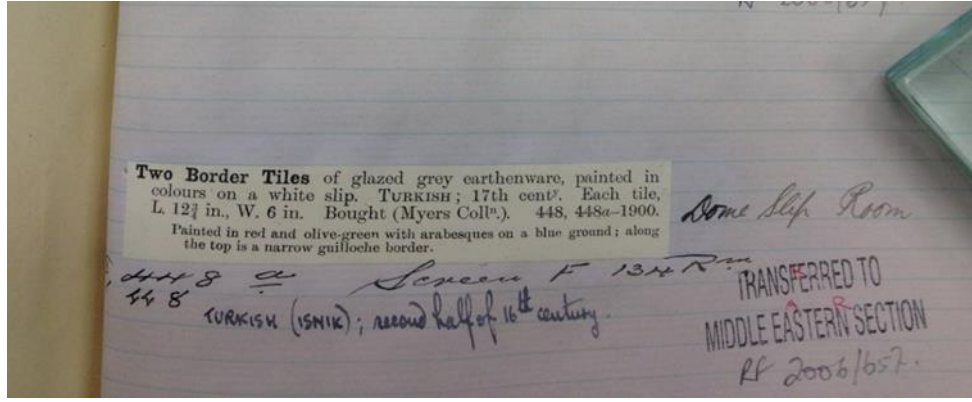 Two Border Tiles of glazed grey earthenware, painted in
colours on a white slip. TURKISH; 17th centy. Each tile,
L. 12¾ in., W. 6 in. Bought (Myers Colln.). 448, 448a–1900.
Painted in red and olive-green with arabesques on a blue ground; along
the top is a narrow guilloche border.
Dome Slip Room
448 a Screen F 134 Rm
448
TURKISH (ISNIK); second half of 16th century.
TRANSFERRED TO
MIDDLE EASTERN SECTION
RF 2006/657.